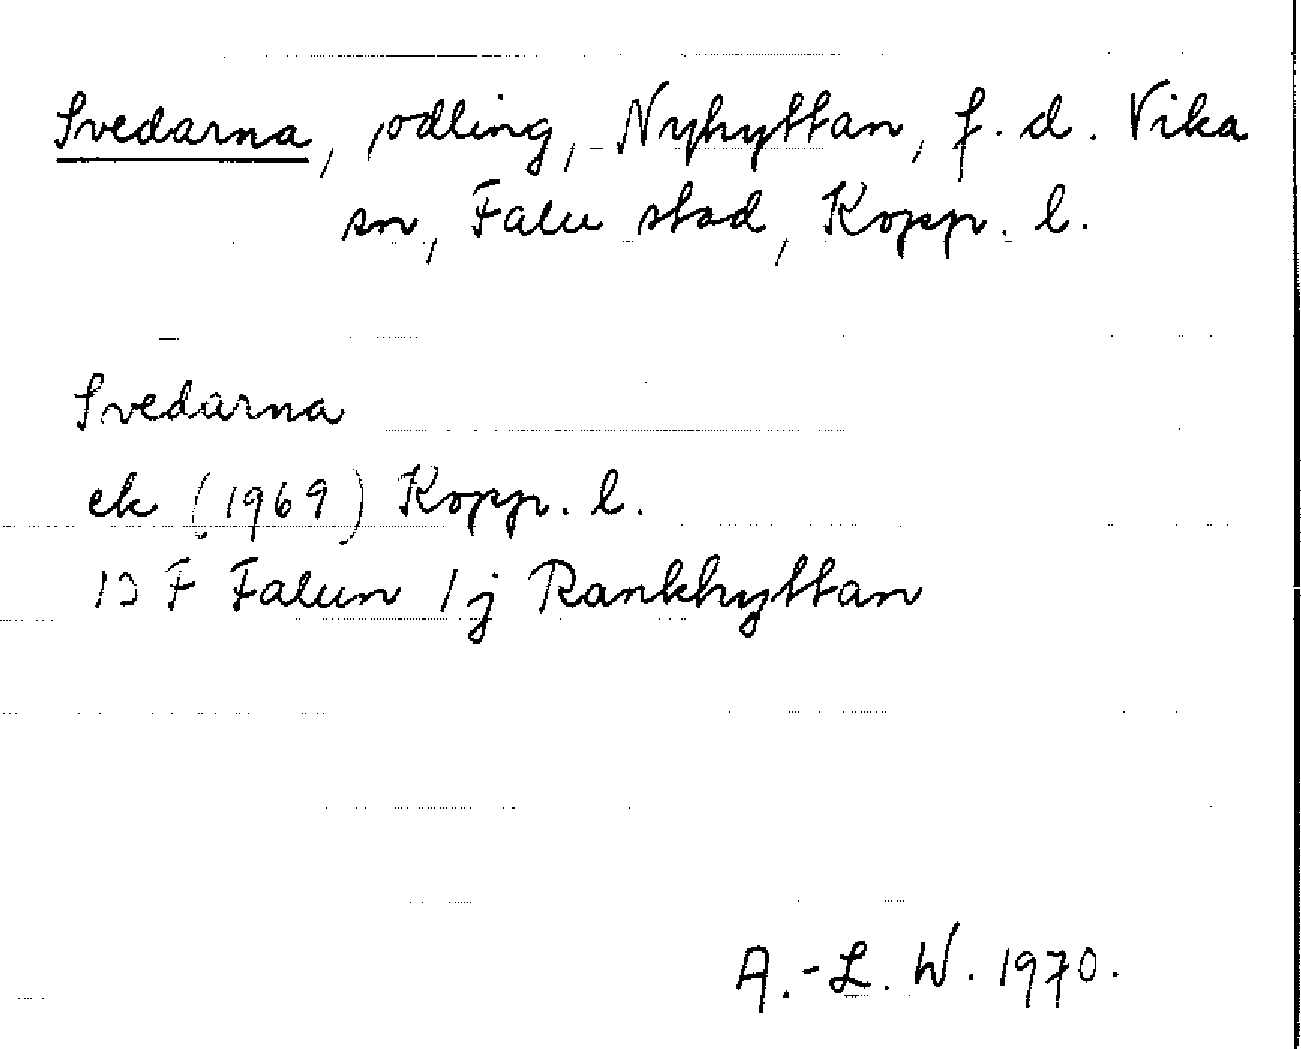 Svedarna, odling, Nyhyttan, f. d. Vika
sn, Falu stad, Kopp. l.
Svedarna
ek (1969) Kopp. l.
12 F Falun 1 j Rankhyttan
A.-L. W. 1970.